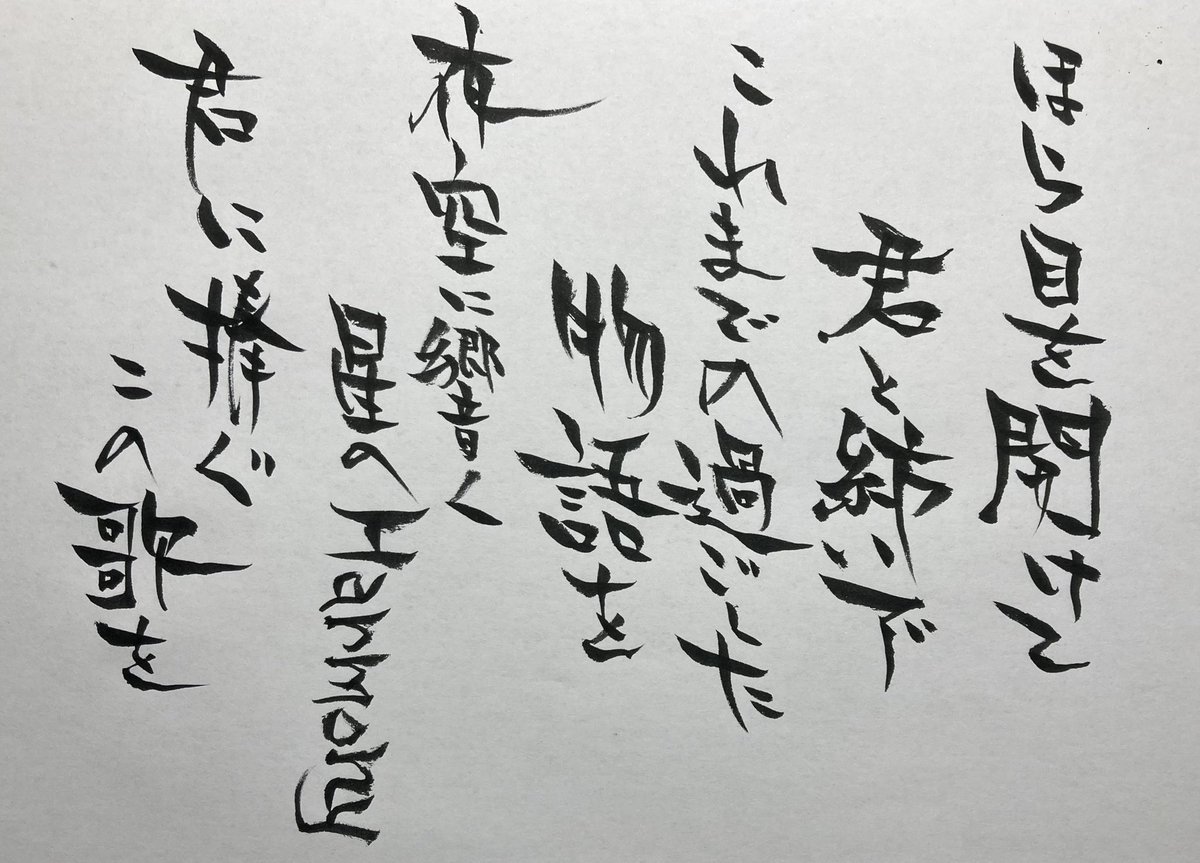 ほら目を開けて
君と紡いで
これまでの過ごした
物語を
夜空に響く
星のHarmony
君に捧ぐ
この歌を